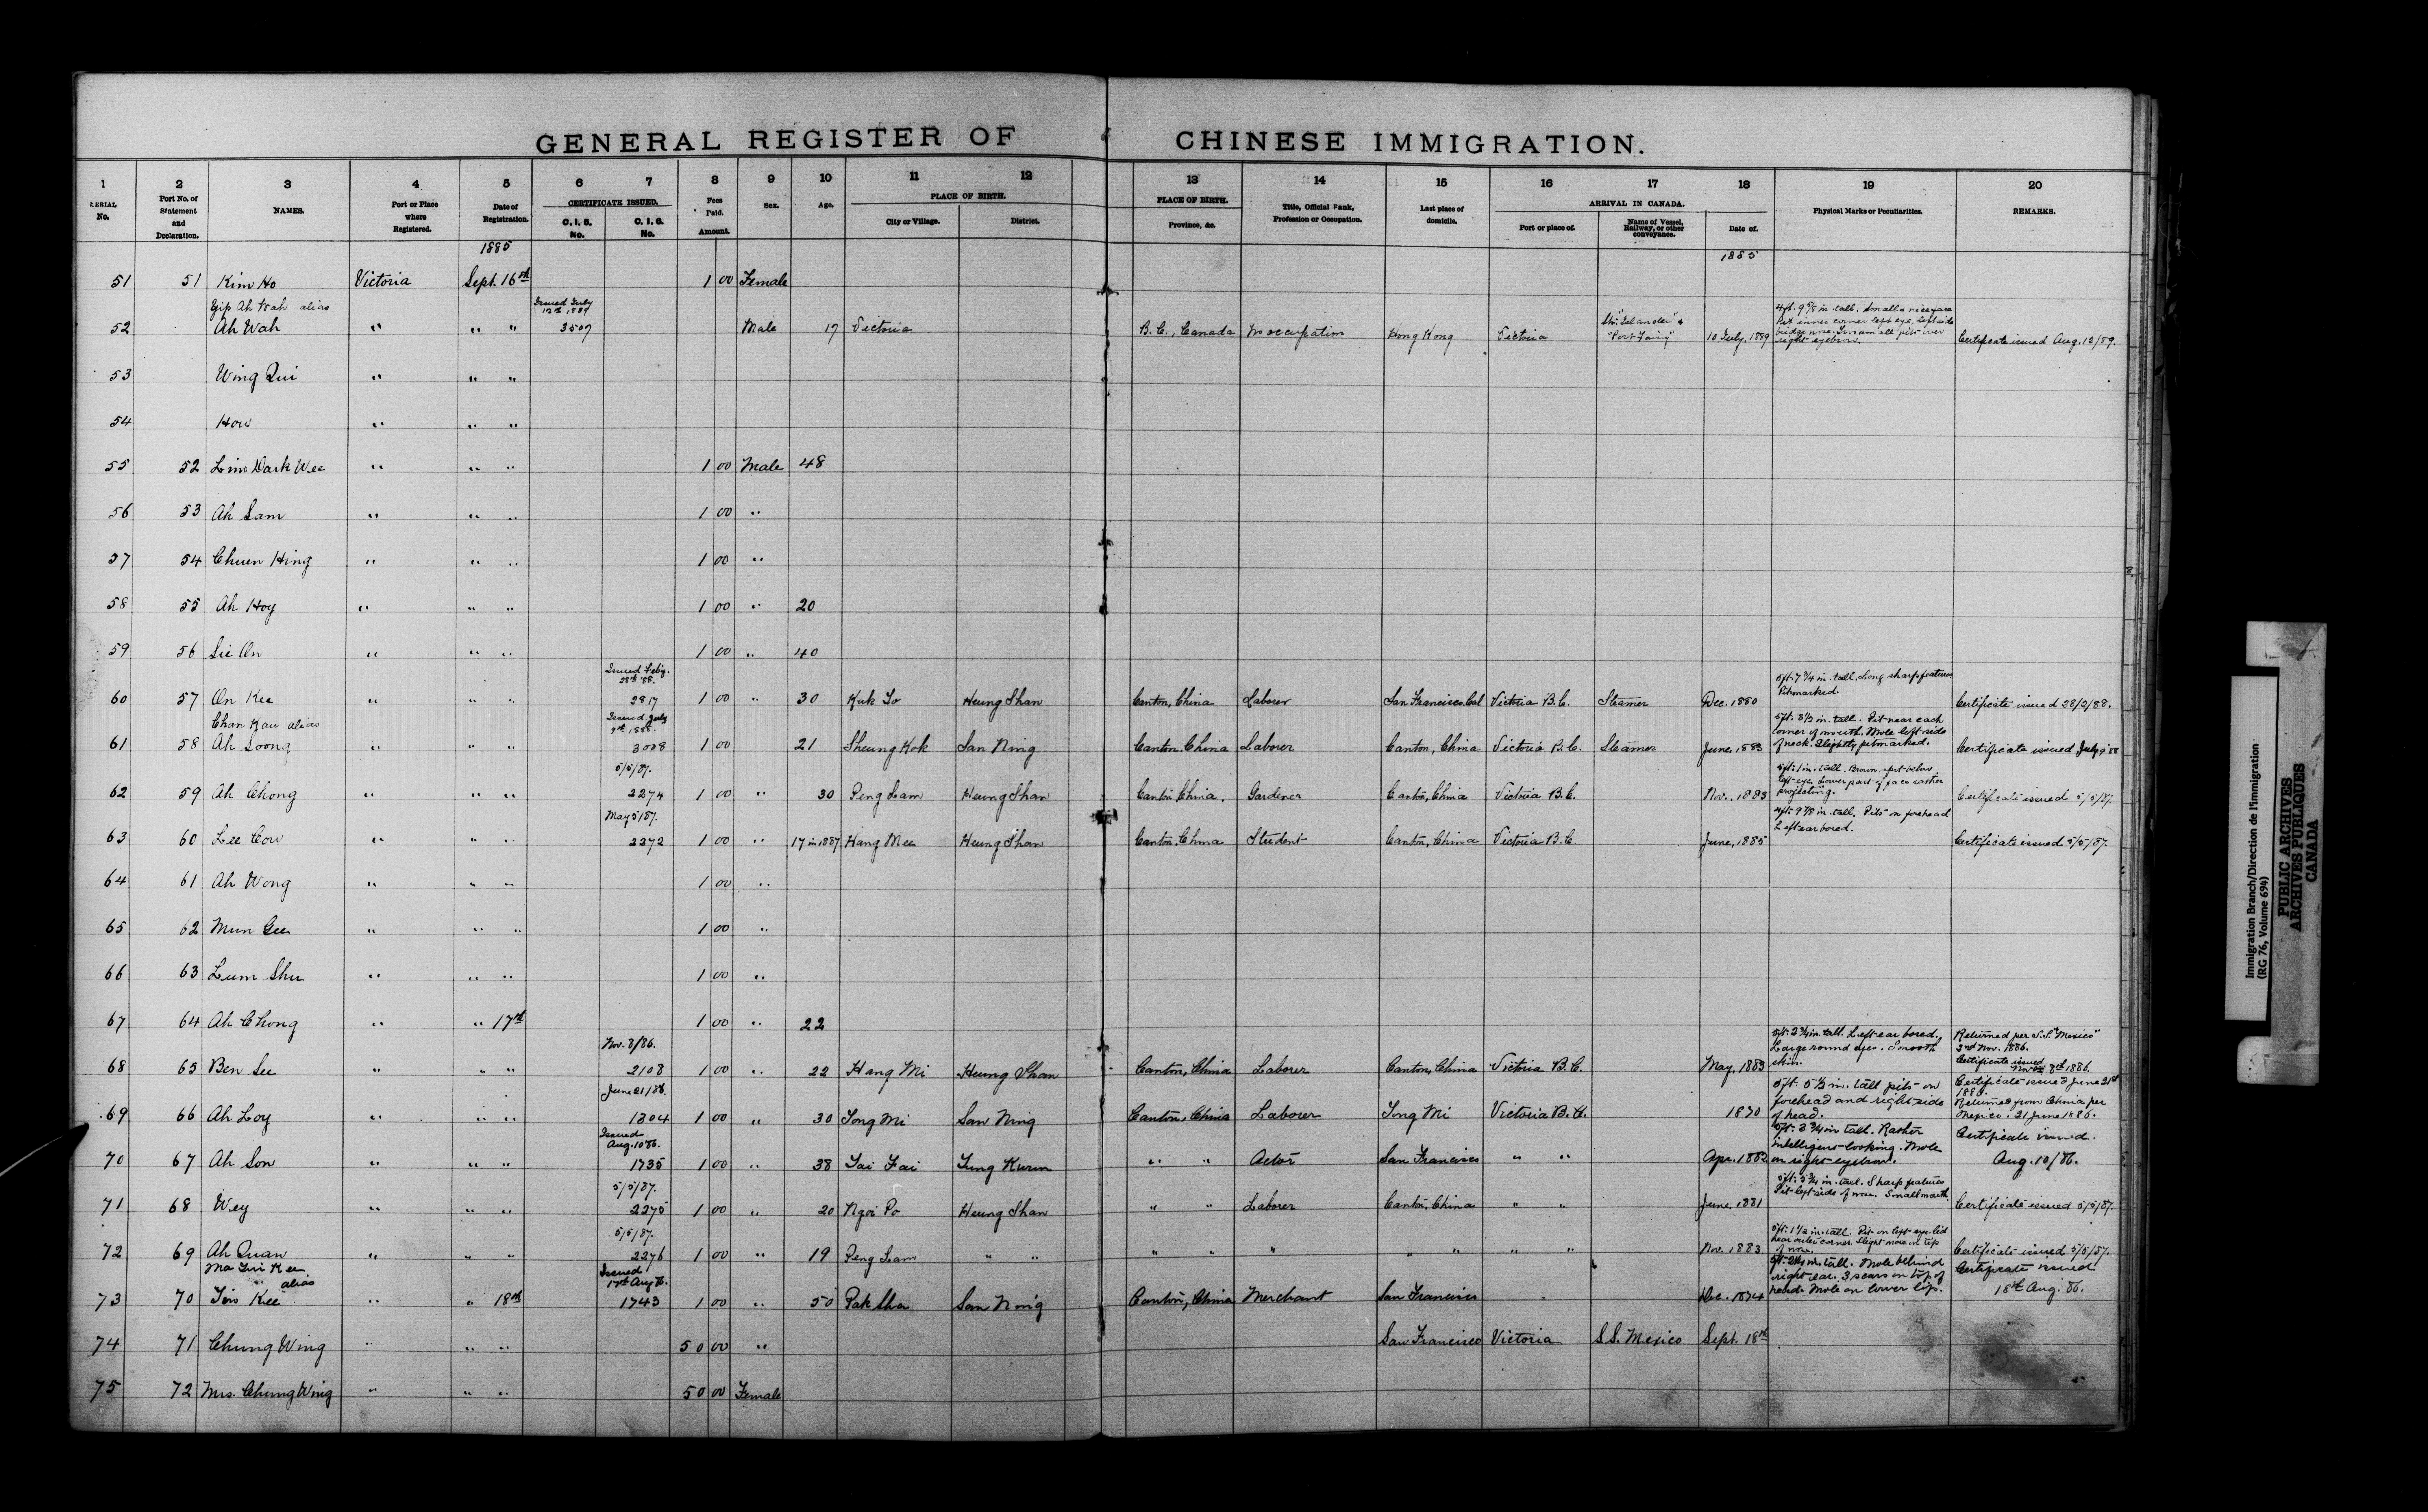 GENERAL REGISTER OF CHINESE IMMIGRATION.
1 2 3 4 5 6 7 8 9 10 11 12 13 14 15 16 17 18 19 20
SERIAL No. Port No. of Statement and Declaration. NAMES. Port or Place where Registered. Date of Registration. CERTIFICATE ISSUED. C. I. 5. No. C. I. 6. No. Fees Paid. Amount. Sex. Age. PLACE OF BIRTH. City or Village. District. PLACE OF BIRTH. Province, &c. Title, Official Rank, Profession or Occupation. Last place of domicile. ARRIVAL IN CANADA. Port or place of. Name of Vessel, Railway, or other conveyance. Date of. Physical Marks or Peculiarities. REMARKS.
1885 1885
51 51 Kim Ho Victoria Sept. 16th 1 00 Female
52 Yip Ah Wah alias Ah Wah " " " Issued July 12th 1889 3507 Male 17 Victoria B.C., Canada No occupation Hong Kong Victoria Str. "Islander" & 10 July, 1889 Certificate issued Aug. 12/89.
53 Wing Qui " " "
54 How " " "
55 52 Lim Dark Wee " " " 1 00 Male 48
56 53 Ah Sam " " " 1 00 "
57 54 Chuen Hing " " " 1 00 "
58 55 Ah Hoy " " " 1 00 " 20
59 56 Sie On " " " 1 00 " 40
60 57 On Kee " " " Issued Feby. 28th 88. 2817 1 00 " 30 Kuk To Heung Shan Canton, China Laborer San Francisco Cal Victoria B.C. Steamer Dec. 1880 5ft. 7 3/4 in. tall. Long sharp features Pitmarked. Certificate issued 28/2/88.
61 58 Chan Kau alias Ah Soong " " " Issued July 9th, 1888. 3008 1 00 21 Sheung Kok San Ning Canton, China Laborer Canton, China Victoria B.C. Steamer June, 1883 5ft. 3 1/2 in. tall. Pit near each corner of mouth. Mole left side of neck. Slightly pitmarked. Certificate issued July 9 88
62 59 Ah Chong " " " 5/5/87. 2274 1 00 " 30 Peng Lam Heung Shan Canton, China. Gardener Canton, China Victoria B.C. Nov., 1883 5ft. 1 in. tall. Brown spot below left eye. Lower part of face rather projecting. Certificate issued 5/5/87.
63 60 Lee Cow " " " May 5/87. 2272 1 00 " 17 in 1887 Hang Mee Heung Shan Canton, China Student Canton, China Victoria B.C. June, 1885 4ft. 9 7/8 in. tall. Pits on forehead Left ear bored. Certificate issued 5/5/87.
64 61 Ah Wong " " " 1 00 "
65 62 Mun Gee " " " 1 00 "
66 63 Lum Shu " " " 1 00 "
67 64 Ah Chong " " 17th 1 00 " 22
68 65 Ben See " " " Nov. 8/86. 2108 1 00 " 22 Hang Mi Heung Shan Canton, China Laborer Canton, China Victoria B.C. May, 1883 5ft. 2 3/4 in. tall. Left ear bored. Large round eyes. Smooth skin. Returned per S.S. "Mexico" 3rd Nov. 1886. Certificate issued Nov. 8th 1886.
69 66 Ah Loy " " " June 21/86. 1304 1 00 " 30 Tong Mi San Ning Canton, China Laborer Tong Mi Victoria B.C. 1870 5ft. 5 1/2 in. tall pits on forehead and right side of head. Certificate issued June 21st 1886. Returned from China per Mexico. 21 June 1886.
70 67 Ah Son " " " Issued Aug. 10 86. 1735 1 00 " 38 Tai Fai Tung Kurun " " Actor San Francisco " " Apr. 1882 5ft. 3 3/4 in tall. Rather intelligent looking. Mole on right eyebrow. Certificate issued. Aug. 10/86.
71 68 Wey " " " 5/5/87. 2275 1 00 " 20 Ngoi Po Heung Shan " " Laborer Canton, China " " June, 1881 5ft. 5 3/4 in. tall. Sharp features Pit left side of nose. Small mouth. Certificate issued 5/5/87.
72 69 Ah Quan " " " 5/5/87. 2276 1 00 " 19 Peng Lam " " " " " " " " " Nov. 1883. 5ft. 1 1/2 in. tall. Pit on left eye-lid near outer corner. Slight mole on tip of nose. Certificate issued 5/5/87.
73 70 Ma Tim Kee alias Tim Kee " " 18th Issued 17th Aug 86. 1743 1 00 " 50 Pak Sha San Ning Canton, China Merchant San Francisco Dec. 1874 tall. Mole behind right ear. 3 scars on top of head. Mole on lower lip. Certificate issued 18th Aug. 86.
74 71 Chung Wing " " " 50 00 " San Francisco Victoria S.S. Mexico Sept. 18th
75 72 Mrs. Chung Wing " " " 50 00 Female
Immigration Branch/Direction de l'immigration
(RG 76, Volume 694)
PUBLIC ARCHIVES
ARCHIVES PUBLIQUES
CANADA